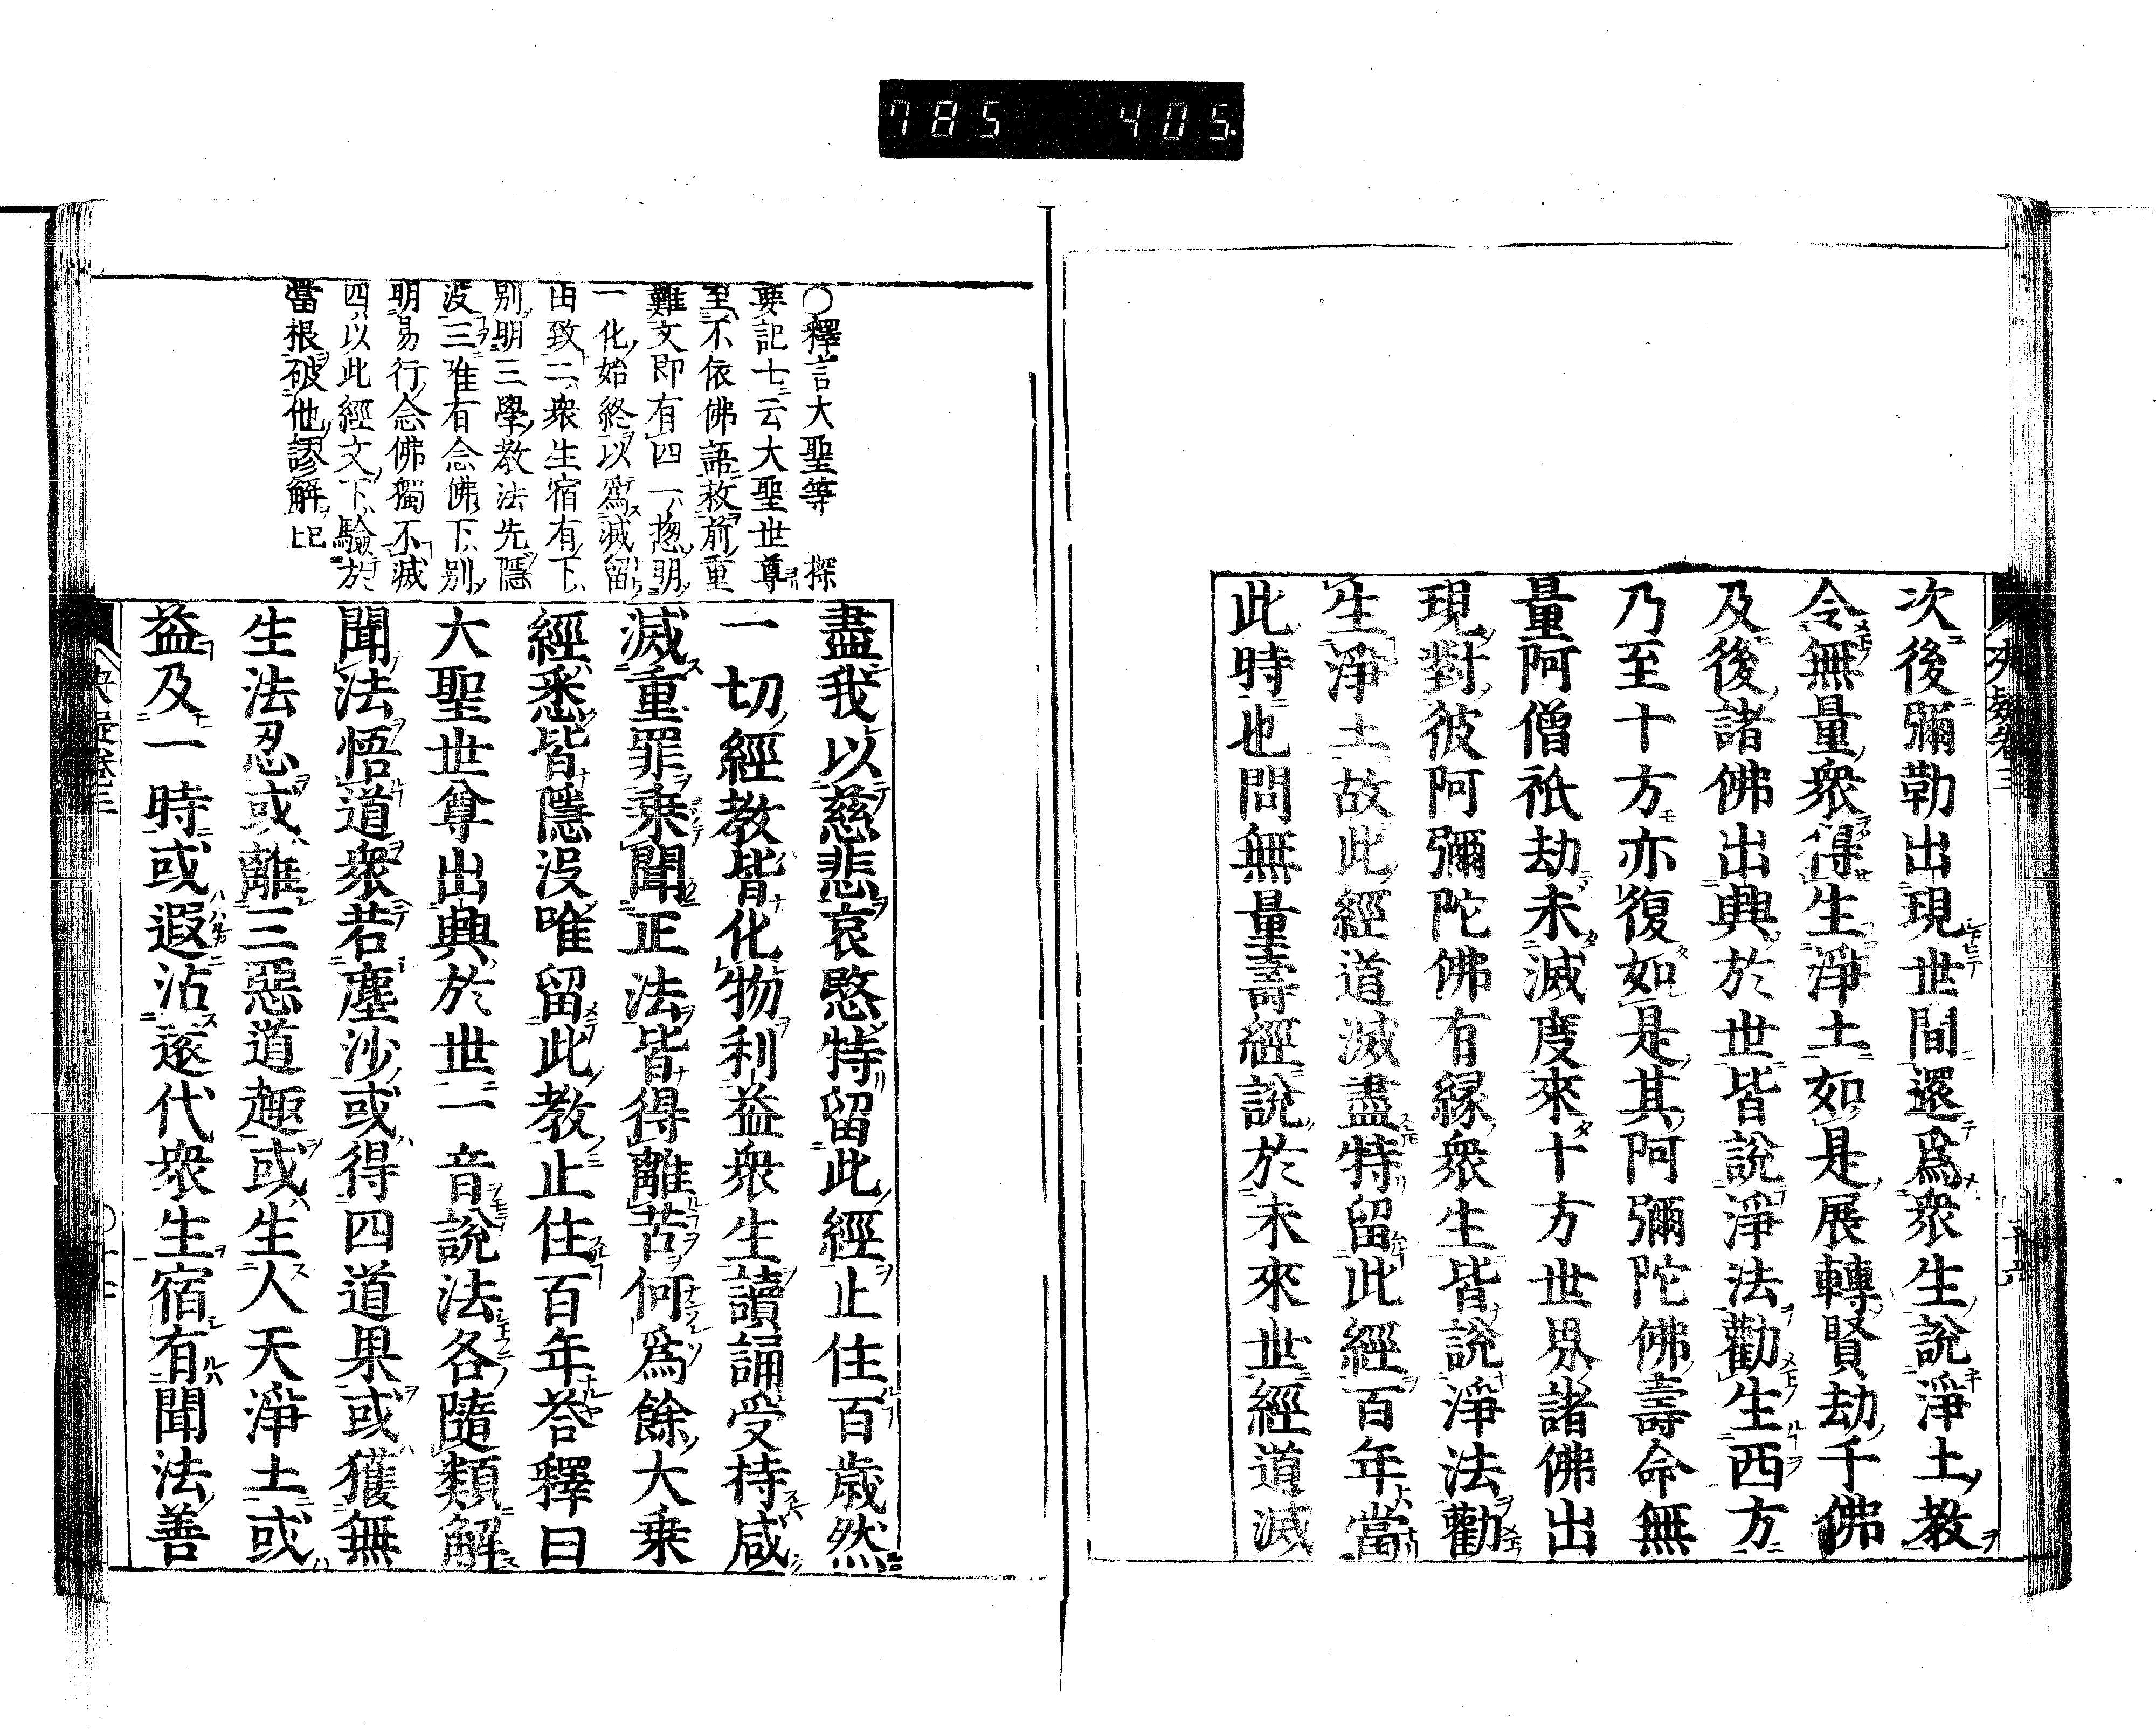 785 405.
次後彌勒出現世間還爲衆生說淨土教
令無量衆得生淨土如是展轉賢劫千佛
及後諸佛出興於世皆說淨法勸生西方
乃至十方亦復如是其阿彌陀佛壽命無
量阿僧祇劫未滅度來十方世界諸佛出
現對彼阿彌陀佛有緣衆生皆說淨法勸
生淨土故此經道滅盡特留此經百年當
此時也問無量壽經說於未來世經道滅
○釋言大聖等 探
要記七云大聖世尊
至不依佛語救前重
難文即有四一揔明
一化始終以爲滅留
由致二衆生宿有下
別明三學教法先隱
沒三唯有念佛下別
明易行念佛獨不滅
四以此經文下驗於
當根破他謬解已上
盡我以慈悲哀愍特留此經止住百歲然
一切經教皆化物利益衆生讀誦受持咸
滅重罪乗聞正法皆得離苦何爲餘大乗
經悉皆隱沒唯留此教止住百年荅釋曰
大聖世尊出興於世一音說法各隨類解
聞法悟道衆若塵沙或得四道果或獲無
生法忍或離三惡道趣或生人天淨土或
益及一時或遐沾遂代衆生宿有聞法善
決疑卷三